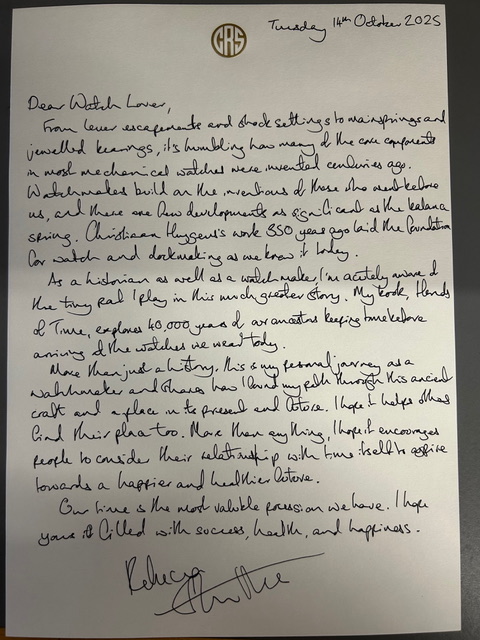 Tuesday 14th October 2025
CRS
Dear Watch Lover,
From lever escapements and shock settings to mainsprings and
jewelled bearings, it's humbling how many of the core components
in most mechanical watches were invented centuries ago.
Watchmakers build on the inventions of those who went before
us, and there are few developments as significant as the balance
spring. Christiaan Huygens's work 350 years ago laid the foundation
for watch and clockmaking as we know it today.
As a historian as well as a watchmaker I'm acutely aware of
the tiny part I play in this much greater story. My book, Hands
of Time, explores 40,000 years of our ancestors keeping time before
arriving at the watches we wear today.
More than just a history, this is my personal journey as a
watchmaker and shares how I found my path through this ancient
craft and a place in its present and future. I hope it helps others
find their place too. More than anything, I hope it encourages
people to consider their relationship with time itself to aspire
towards a happier and healthier future.
Our time is the most valuble possession we have. I hope
yours is filled with success, health, and happiness.
Rebecca
Struthers